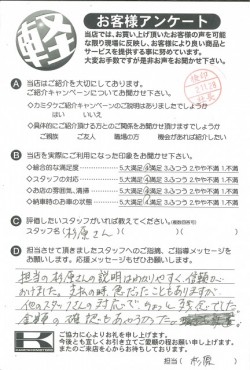 軽
お客様アンケート
当店では、お買い上げ頂いたお客様の声を可能
な限り現場に反映し、お客様により良い商品と
サービスを提供する事に努めています。
大変お手数ですが是非お声をお聞かせ下さい。
検印
A 当店はご紹介を大切にしております。
ご紹介キャンペーンについてお伺い致します。
◇カミタケご紹介キャンペーンのご説明はありましたでしょうか
はい いいえ
◇具体的にご紹介頂ける方とのご関係をお聞かせ頂けますでしょうか
ご親族 友人 職場の方 機会があれば紹介したい
B 当店を実際にご利用になった印象をお聞かせ下さい。
◇総合的な満足度 5.大満足 4.満足 3.ふつう 2.やや不満 1.不満
◇スタッフの対応 5.大満足 4.満足 3.ふつう 2.やや不満 1.不満
◇お店の雰囲気、清掃 5.大満足 4.満足 3.ふつう 2.やや不満 1.不満
◇納車時のお車の状態 5.大満足 4.満足 3.ふつう 2.やや不満 1.不満
C 評価したいスタッフがいれば教えてください。(複数回答可)
スタッフ名(杉原さん)( )( )
D 担当させて頂きましたスタッフへのご指摘、ご指導メッセージを
お願いします。どちらかと言うと応援メッセージをお願いします。
担当の杉原さんの説明はわかりやすく、信頼が
おけました。
他のスタッフさんの対応
金額の
ご協力に心よりお礼を申し上げます。
今後とも宜しくお引き立てご愛顧の程お願い申し上げます。
またのご来店を心からお待ちしております。
担当( 杉原 )